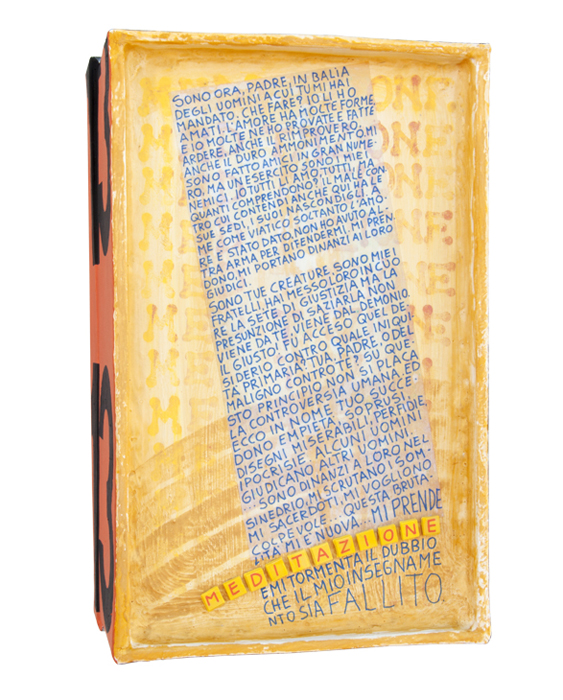 SONO ORA, PADRE, IN BALIA
DEGLI UOMINI A CUI TU MI HAI
MANDATO. CHE FARE? IO LI HO
AMATI. L'AMORE HA MOLTE FORME,
E IO MOLTE NE HO PROVATE E FATTE
ARDERE, ANCHE IL RIMPROVERO,
ANCHE IL DURO AMMONIMENTO. MI
SONO FATTO AMICI IN GRAN NUME-
RO, MA UN ESERCITO SONO I MIEI
NEMICI. IO TUTTI LI AMO: TUTTI, MA
QUANTI COMPRENDONO? IL MALE CON-
TRO CUI CONTENDI ANCHE QUI HA LE
SUE SEDI, I SUOI NASCONDIGLI. A
ME COME VIATICO SOLTANTO L'AMO-
RE È STATO DATO. NON HO AVUTO AL-
TRA ARMA PER DIFENDERMI. MI PREN-
DONO, MI PORTANO DINANZI AI LORO
GIUDICI.
SONO TUE CREATURE, SONO MIEI
FRATELLI, HAI MESSO LORO IN CUO
RE LA SETE DI GIUSTIZIA MA LA
PRESUNZIONE DI SAZIARLA NON
VIENE DA TE, VIENE DAL DEMONIO
IL GIUSTO! FU ACCESO QUEL DE-
SIDERIO CONTRO QUALE INIQUI
TÀ PRIMARIA, TUA, PADRE, O DEL
MALIGNO CONTRO TE? SU QUE
STO PRINCIPIO NON SI PLACA
LA CONTROVERSIA UMANA. ED
ECCO IN NOME TUO SUCCE
DONO EMPIETÀ, SOPRUSI,
DISEGNI MISERABILI, PERFIDIE,
IPOCRISIE. ALCUNI UOMINI
GIUDICANO ALTRI UOMINI.
SONO DINANZI A LORO NEL
SINEDRIO, MI SCRUTANO I SOM
MI SACERDOTI, MI VOGLIONO
COLPEVOLE... QUESTA BRUTA-
LITÀ MI È NUOVA. MI PRENDE
MEDITAZIONE
E MI TORMENTA IL DUBBIO
CHE IL MIO INSEGNAME
NTO SIA FALLITO.